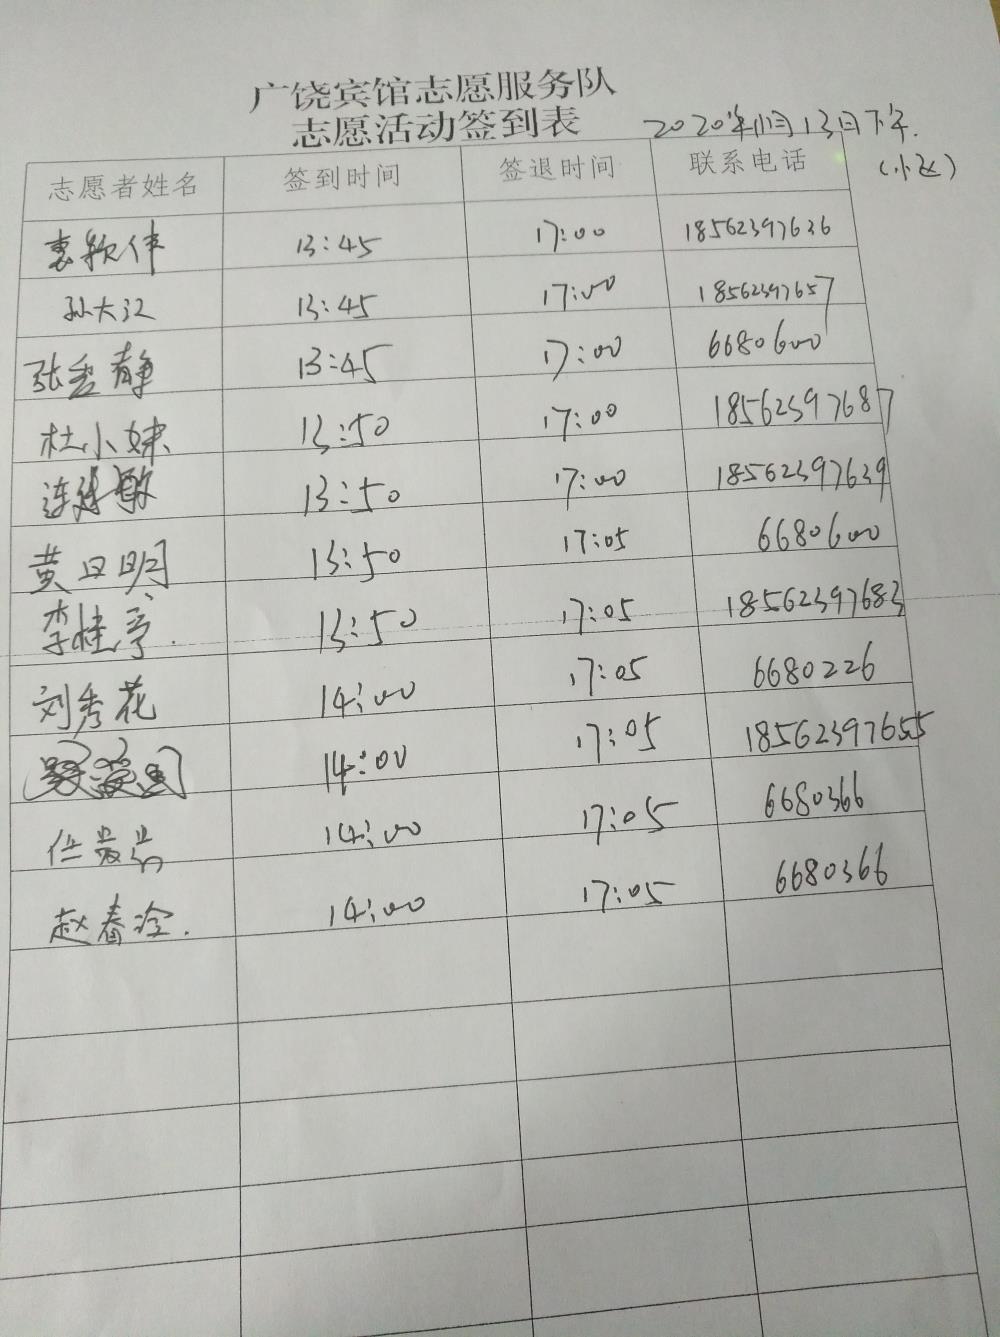 广饶宾馆志愿服务队
志愿活动签到表 2020年11月13日下午.
(小区)
志愿者姓名 签到时间 签退时间 联系电话
13:45 17:00 18562397636
孙大江 13:45 17:00 18562397657
张秀静 13:45 17:00 6680600
杜小妹 13:50 17:00 18562397687
13:50 17:00 18562397639
黄日明 13:50 17:05 6680600
李桂亭. 13:50 17:05 18562397683
刘秀花 14:00 17:05 6680226
14:00 17:05 18562397655
14:00 17:05 6680366
赵春冷. 14:00 17:05 6680366